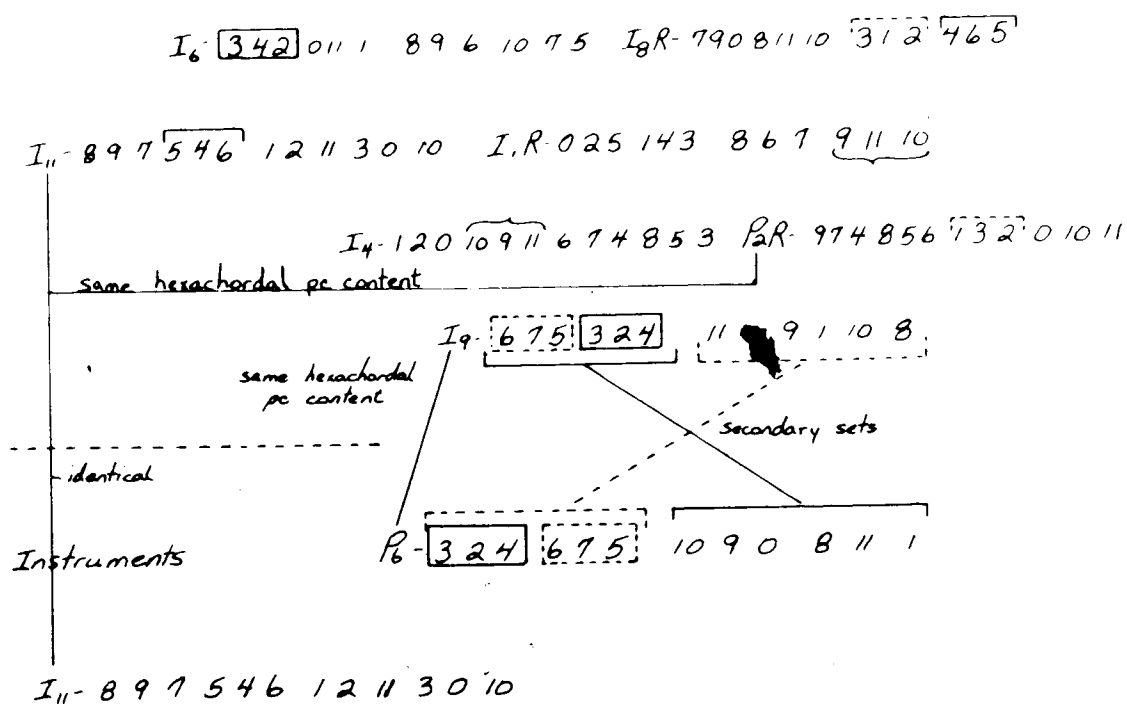 I6- 3 4 2 0 11 1 8 9 6 10 7 5 I8R- 7 9 0 8 11 10 3 1 2 4 6 5
I11- 8 9 7 5 4 6 1 2 11 3 0 10 I1R- 0 2 5 1 4 3 8 6 7 9 11 10
I4- 1 2 0 10 9 11 6 7 4 8 5 3 P2R- 9 7 4 8 5 6 1 3 2 0 10 11
same hexachordal pc content
I9- 6 7 5 3 2 4 11 9 1 10 8
same hexachordal
pc content
secondary sets
identical
Instruments
P6- 3 2 4 6 7 5 10 9 0 8 11 1
I11- 8 9 7 5 4 6 1 2 11 3 0 10